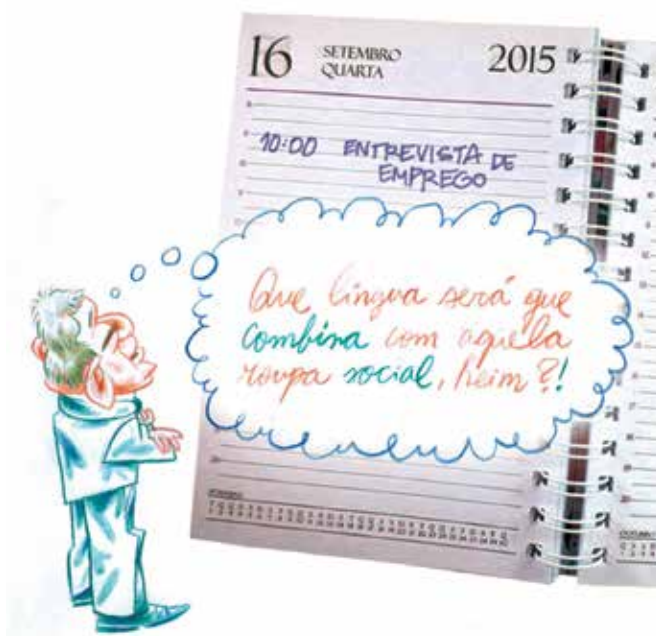 16 SETEMBRO 2015
QUARTA
10:00 ENTREVISTA DE
EMPREGO
Que língua será que
combina com aquela
roupa social, heim?!